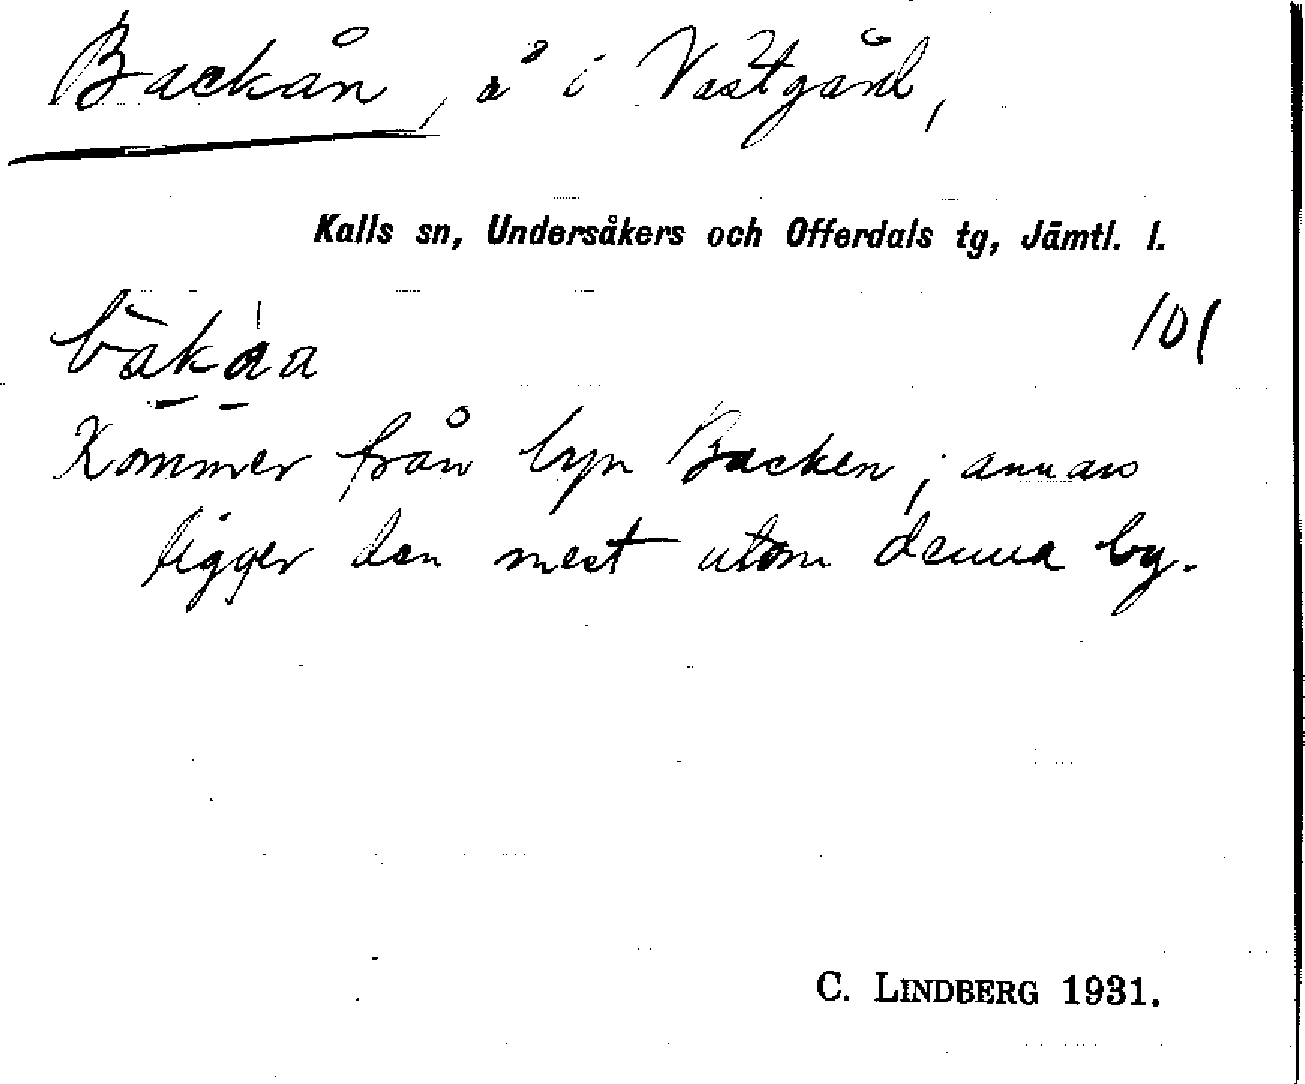 Backån, å i Västgård,
Kalls sn, Undersåkers och Offerdals tg, Jämtl. l.
101
Kommer från byn Backen; annars
ligger den mest utom denna by.
C. LINDBERG 1931.